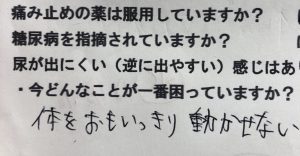 痛み止めの薬は服用していますか？
糖尿病を指摘されていますか？
尿が出にくい（逆に出やすい）感じはあり
・今どんなことが一番困っていますか？
体をおもいっきり動かせない